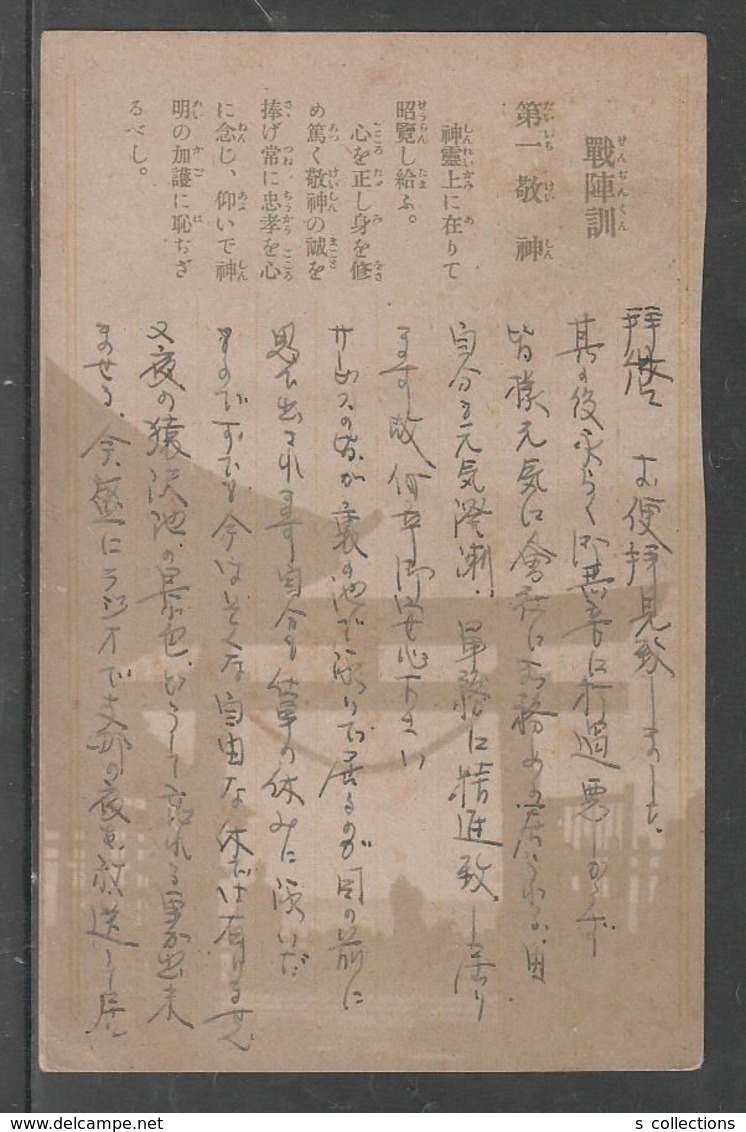 戰陣訓
第一 敬神
神靈上に在りて
昭覽し給ふ。
心を正し身を修
め篤く敬神の誠を
捧げ常に忠孝を心
に念じ、仰いで神
明の加護に恥ぢざ
るべし。
拝啓 お便拝見致しました。
其の後永らく御無音に打過悪しからず
皆様元気に會社に
自分も元気溌溂、軍務に精進致し居り
ます故何卒御安心下さい
の者が裏の池で泳いで居るのが目の前に
思ひ出されます自分も仕事の休みに泳いだ
ものですでも今はそんな自由な休だは有りません
又夜の猿沢池の景色、どうして忘れる事が出来
ませう、今、盛にラジオで支那の夜を放送し居
s collections